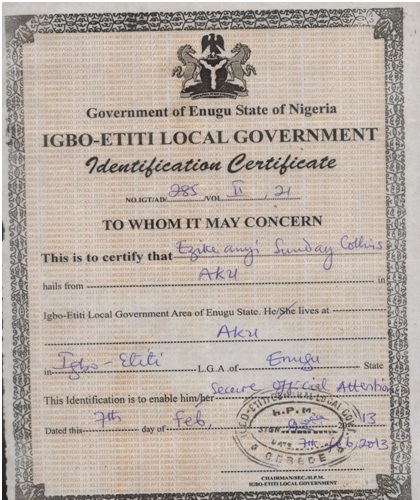 Government of Enugu State of Nigeria
IGBO-ETITI LOCAL GOVERNMENT
Identification Certificate
NO.IGT/AD/ 285 /VOL II , 21
TO WHOM IT MAY CONCERN
This is to certify that Ezikeanyi Sunday Collins
hails from Aku in
Igbo-Etiti Local Government Area of Enugu State. He/She lives at
Aku
in Igbo-Etiti L.G.A.of Enugu State
This Identification is to enable him/her Secure Official Attention
Dated this 7th day of Feb, 2013
H.P.M.
SIGN
DATE 7th Feb, 2013
OGBEDE
CHAIRMAN/SEC./H.P.M.
IGBO-ETITI LOCAL GOVERNMENT